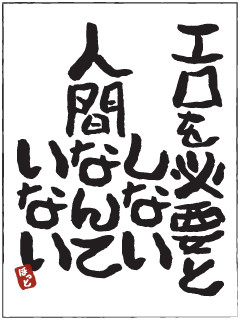 エロを必要と
しない
人間なんて
いない
ほっと